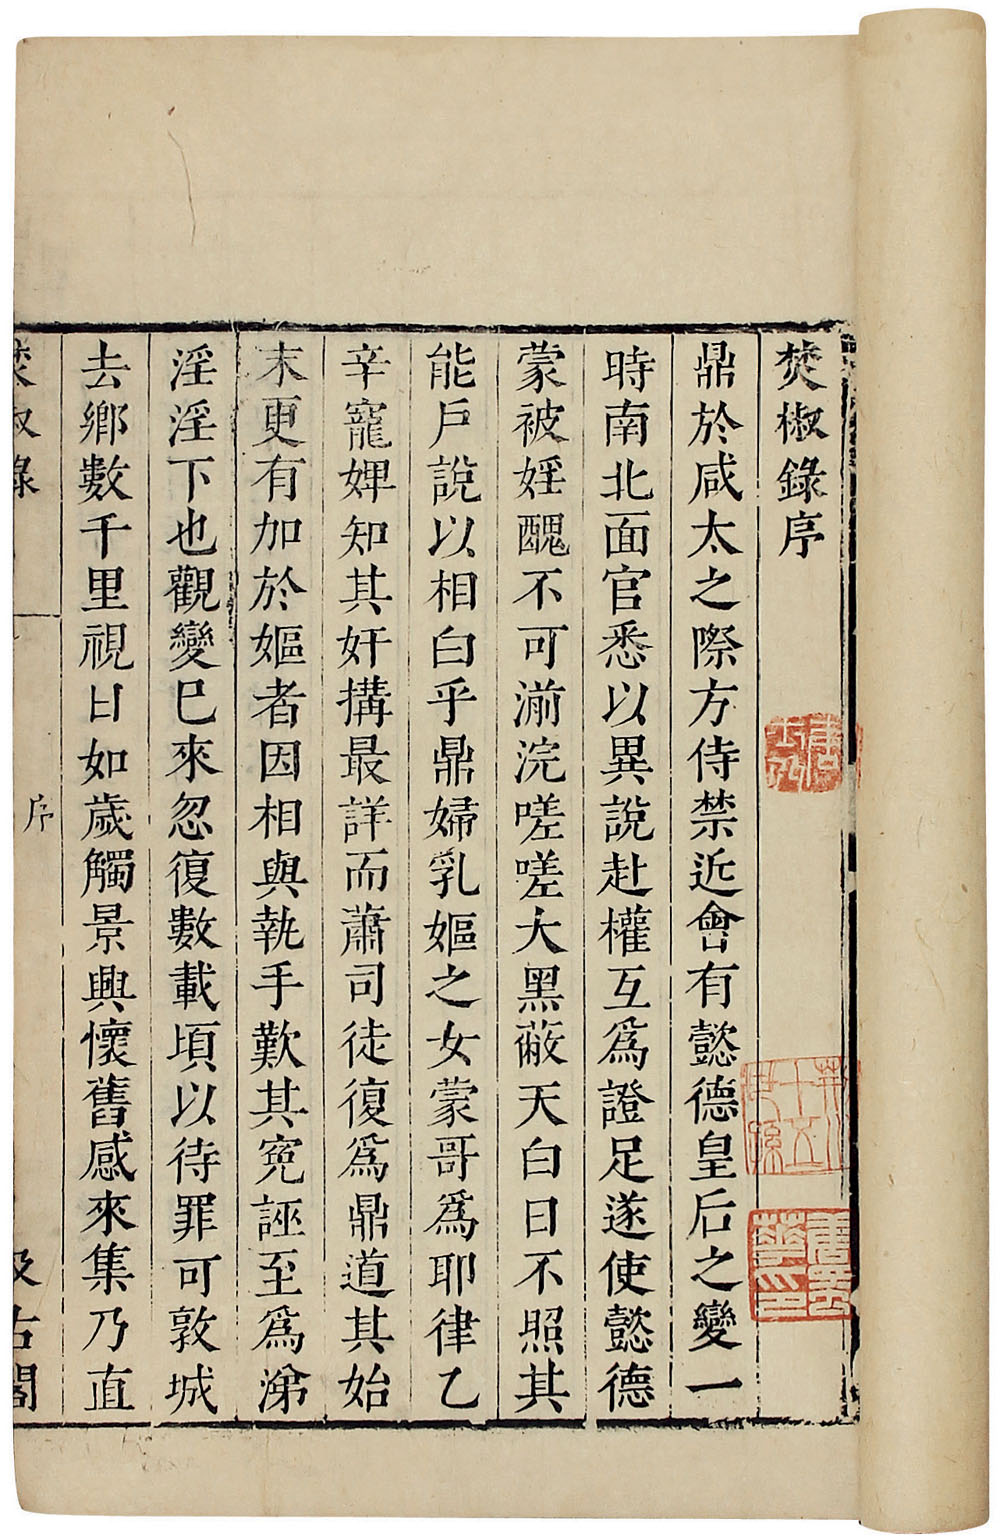 焚椒錄序
鼎於咸太之際方侍禁近會有懿德皇后之變一
時南北面官悉以異說赴權互爲證足遂使懿德
蒙被婬醜不可湔浣嗟嗟大黑蔽天白日不照其
能戶說以相白乎鼎婦乳嫗之女蒙哥爲耶律乙
辛寵婢知其奸搆最詳而蕭司徒復爲鼎道其始
末更有加於嫗者因相與執手歎其寃誣至爲涕
淫淫下也觀變巳來忽復數載頃以待罪可敦城
去鄉數千里視日如歲觸景興懷舊感來集乃直
焚椒錄
序
汲古閣